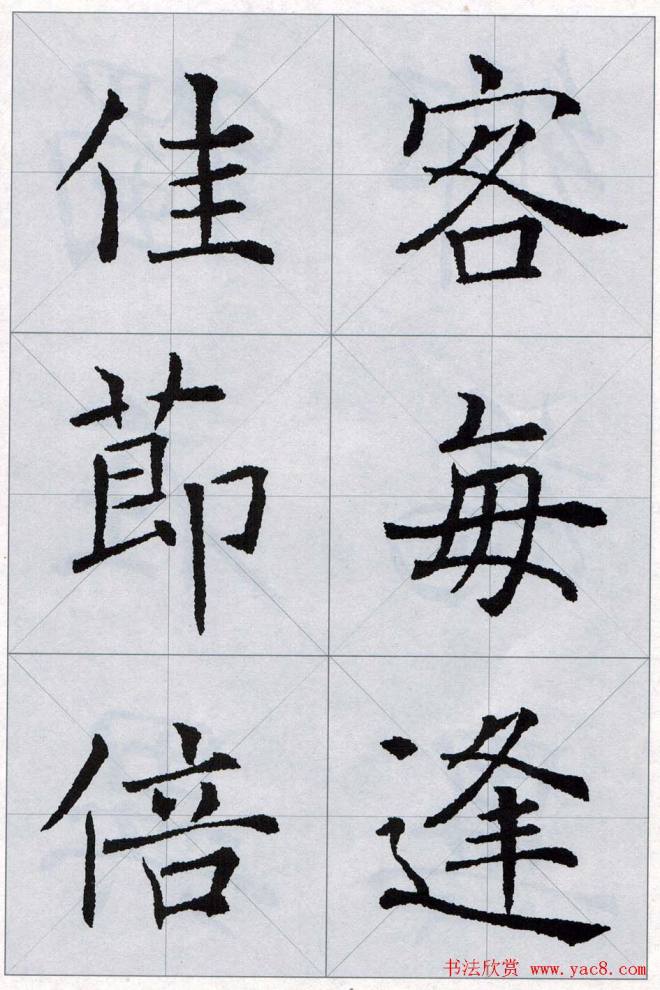 客每逢
佳節倍
书法欣赏 www.yac8.com